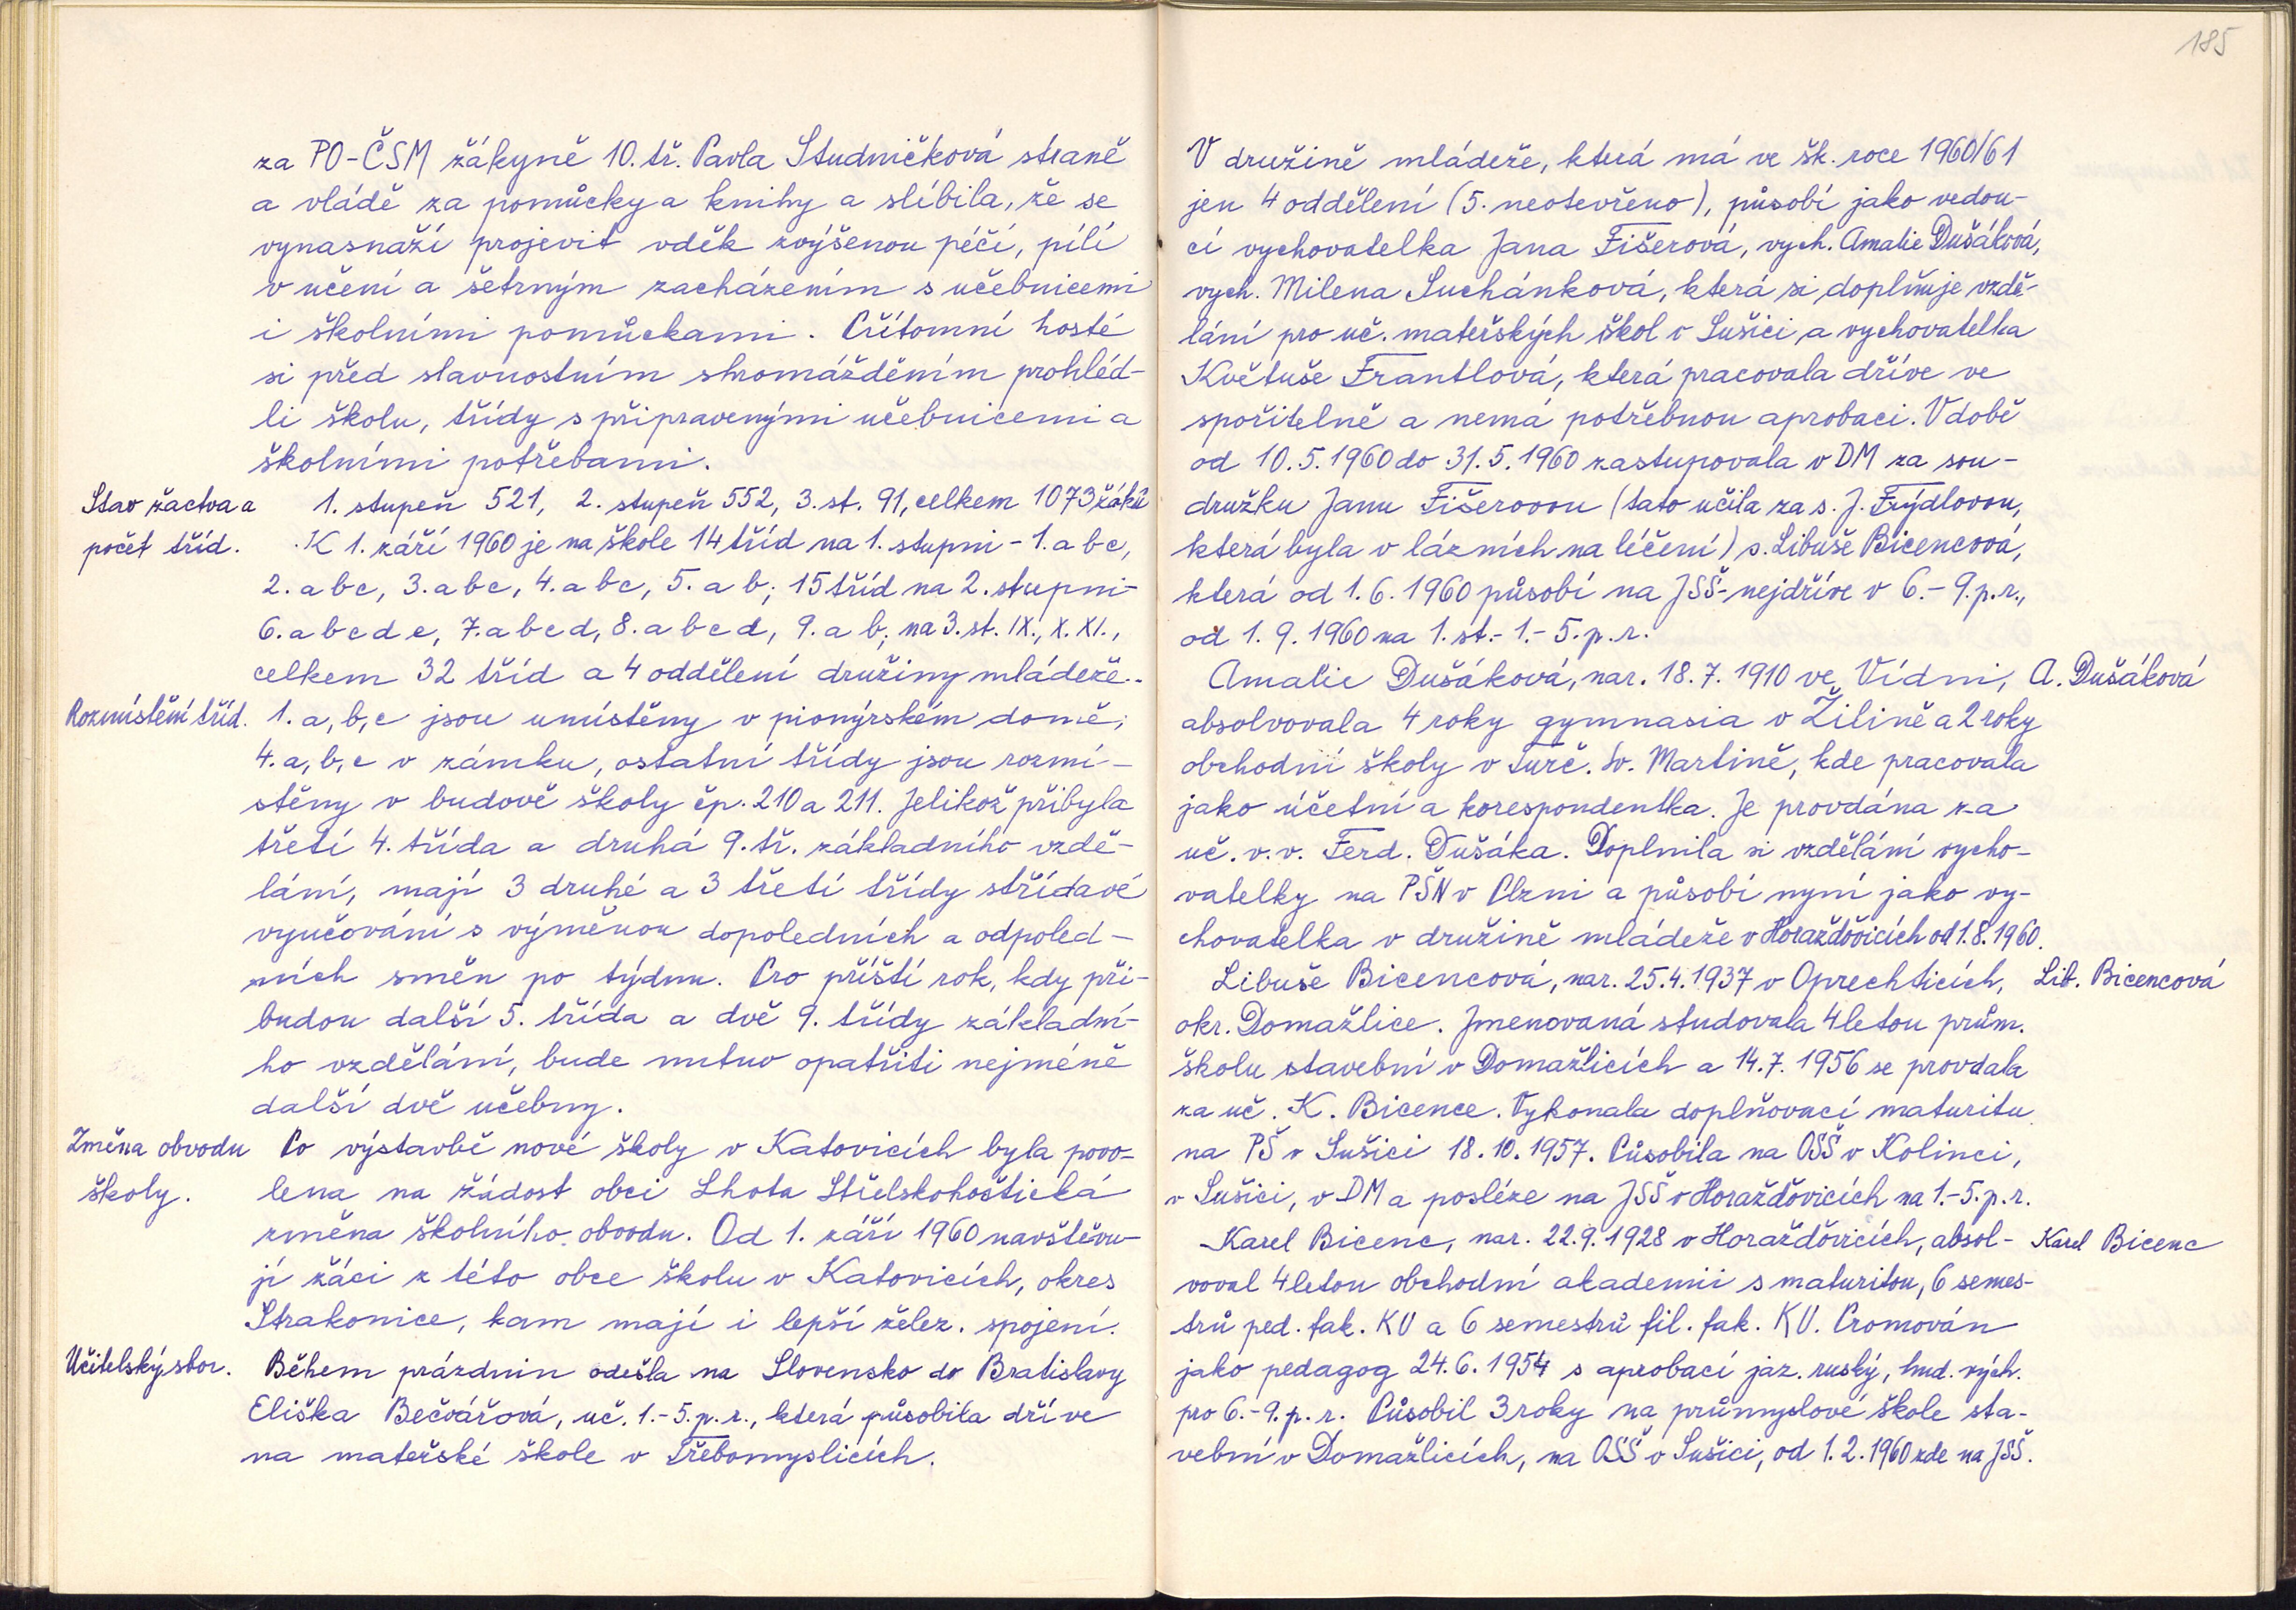 za PO-ČSM žákyně 10. tř. Pavla Studničková straně
a vládě za pomůcky a knihy a slíbila, že se
vynasnaží projevit vděk zvýšenou péčí, pílí
v učení a šetrným zacházením s učebnicemi
i školními pomůckami. Přítomní hosté
si před slavnostním shromážděním prohléd-
li školu, třídy s připravenými učebnicemi a
školními potřebami.
Stav žactva a
počet tříd.
1. stupeň 521, 2. stupeň 552, 3. st. 91, celkem 1073 žáků
K 1. září 1960 je na škole 14 tříd na 1. stupni - 1. a b c,
2. a b c, 3. a b c, 4. a b c, 5. a b; 15 tříd na 2. stupni-
6. a b c d e, 7. a b c d, 8. a b c d, 9. a b; na 3. st. IX., X. XI.,
celkem 32 tříd a 4 oddělení družiny mládeže.
Rozmístění tříd.
1. a, b, c jsou umístěny v pionýrském domě,
4. a, b, c v zámku, ostatní třídy jsou rozmí-
stěny v budově školy čp. 210 a 211. Jelikož přibyla
třetí 4. třída a druhá 9. tř. základního vzdě-
lání, mají 3 druhé a 3 třetí třídy střídavé
vyučování s výměnou dopoledních a odpoled-
ních směn po týdnu. Pro příští rok, kdy při-
budou další 5. třída a dvě 9. třídy základní-
ho vzdělání, bude nutno opatřiti nejméně
další dvě učebny.
Změna obvodu
školy.
Po výstavbě nové školy v Katovicích byla povo-
lena na žádost obci Lhota Střelskohoštická
změna školního obvodu. Od 1. září 1960 navštěvu-
jí žáci z této obce školu v Katovicích, okres
Strakonice, kam mají i lepší želez. spojení.
Učitelský sbor.
Během prázdnin odešla na Slovensko do Bratislavy
Eliška Bečvářová, uč. 1.-5. p. r., která působila dříve
na mateřské škole v Třebomyslicích.
185
V družině mládeže, která má ve šk. roce 1960/61
jen 4 oddělení (5. neotevřeno), působí jako vedou-
cí vychovatelka Jana Fišerová, vych. Amalie Dušáková,
vych. Milena Suchánková, která si doplňuje vzdě-
lání pro uč. mateřských škol v Sušici a vychovatelka
Květuše Frantlová, která pracovala dříve ve
spořitelně a nemá potřebnou aprobaci. V době
od 10. 5. 1960 do 31. 5. 1960 zastupovala v DM za sou-
družku Janu Fišerovou (tato učila za s. J. Frýdlovou,
která byla v lázních na léčení) s. Libuše Bicencová,
která od 1. 6. 1960 působí na JSŠ - nejdříve v 6.-9. p. r.,
od 1. 9. 1960 na 1. st. - 1.-5. p. r.
Amalie Dušáková, nar. 18. 7. 1910 ve Vídni,
A. Dušáková
absolvovala 4 roky gymnasia v Žilině a 2 roky
obchodní školy v Turč. Sv. Martině, kde pracovala
jako účetní a korespondentka. Je provdána za
uč. v. v. Ferd. Dušáka. Doplnila si vzdělání vycho-
vatelky na PŠN v Plzni a působí nyní jako vy-
chovatelka v družině mládeže v Horažďovicích od 1. 8. 1960.
Libuše Bicencová, nar. 25. 4. 1937 v Oprechticích,
Lib. Bicencová
okr. Domažlice. Jmenovaná studovala 4letou prům.
školu stavební v Domažlicích a 14. 7. 1956 se provdala
za uč. K. Bicence. Vykonala doplňovací maturitu
na PŠ v Sušici 18. 10. 1957. Působila na OSŠ v Kolinci,
v Sušici, v DM a posléze na JSŠ v Horažďovicích na 1.-5. p. r.
Karel Bicenc, nar. 22. 9. 1928 v Horažďovicích, absol-
Karel Bicenc
voval 4letou obchodní akademii s maturitou, 6 semes-
trů ped. fak. KU a 6 semestrů fil. fak. KU. Promován
jako pedagog 24. 6. 1954 s aprobací jaz. ruský, hud. vých.
pro 6.-9. p. r. Působil 3 roky na průmyslové škole sta-
vební v Domažlicích, na OSŠ v Sušici, od 1. 2. 1960 zde na JSŠ.